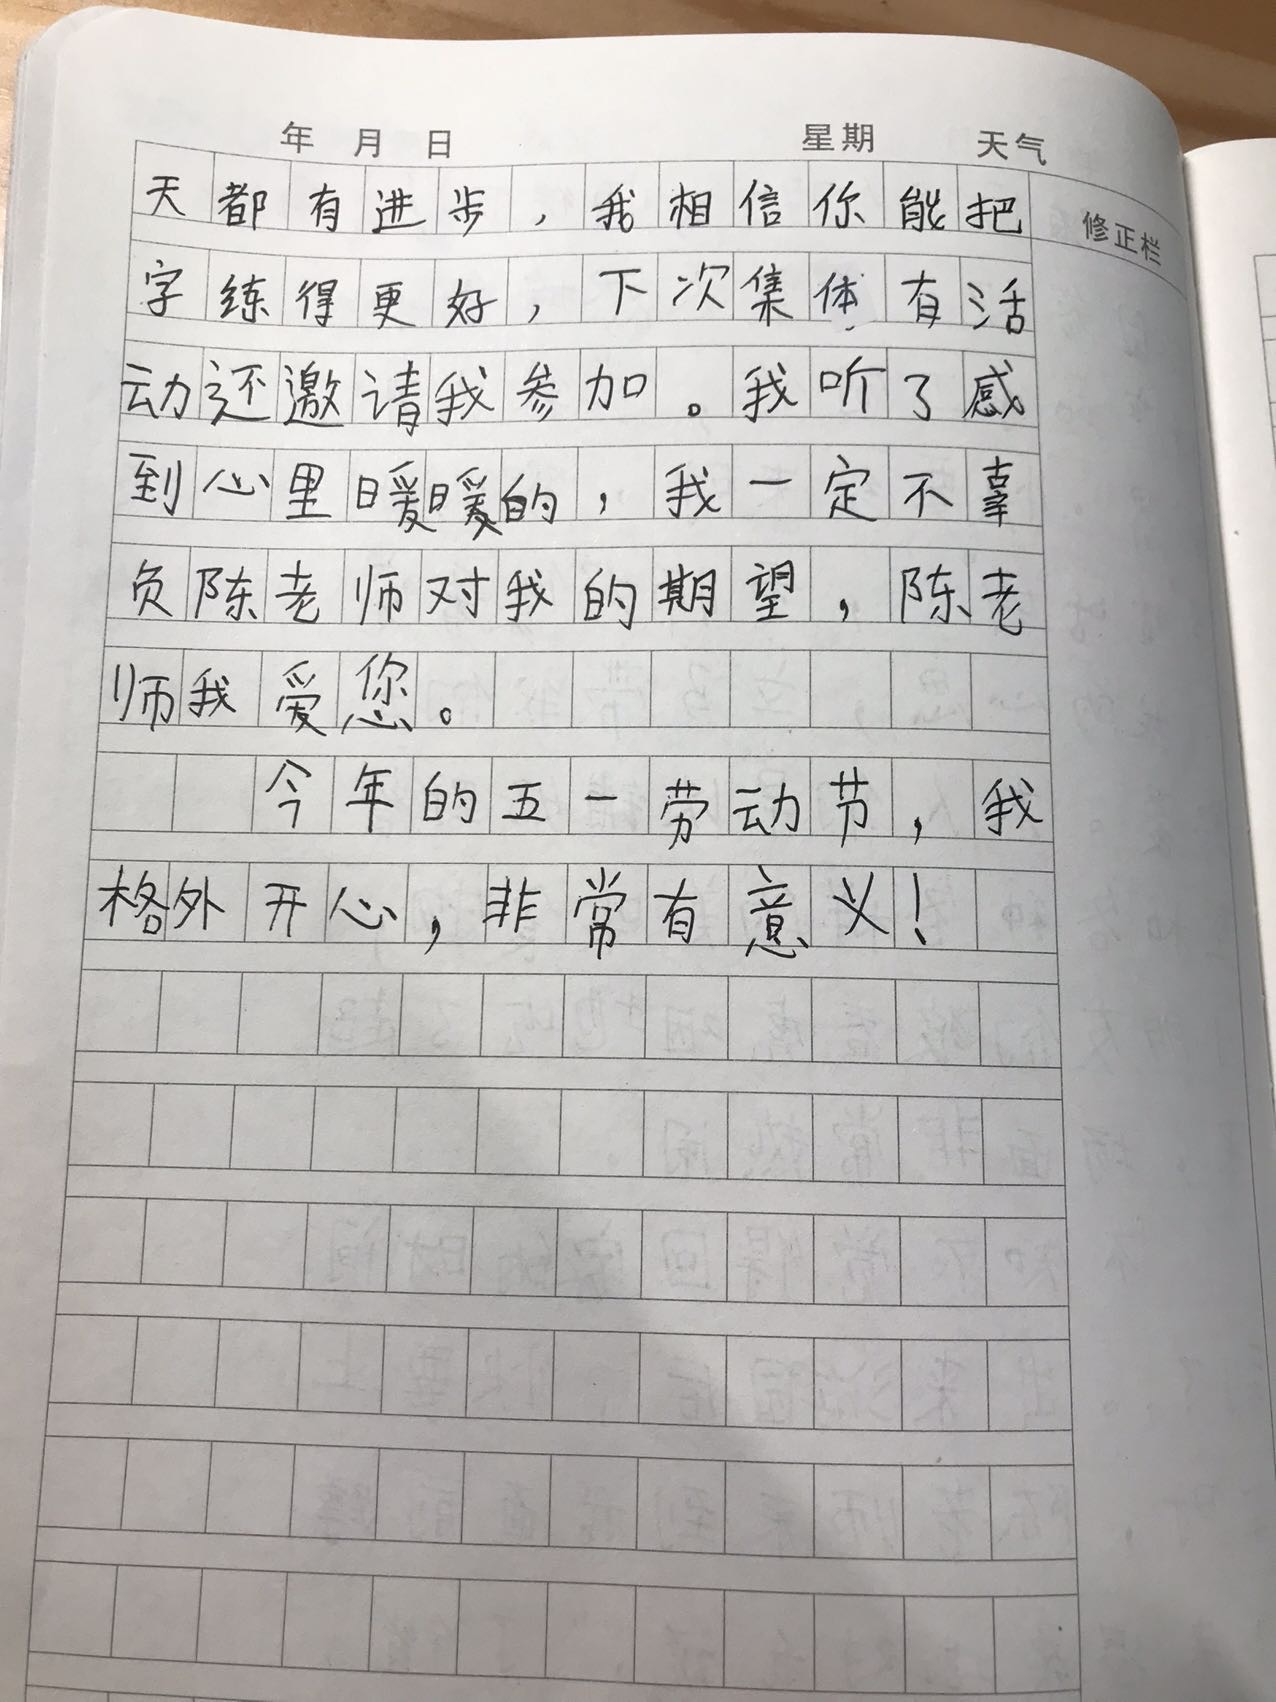 年 月 日 星期 天气
修正栏
天都有进步，我相信你能把
字练得更好，下次集体有活
动还邀请我参加。我听了感
到心里暖暖的，我一定不辜
负陈老师对我的期望，陈老
师我爱您。
今年的五一劳动节，我
格外开心，非常有意义！